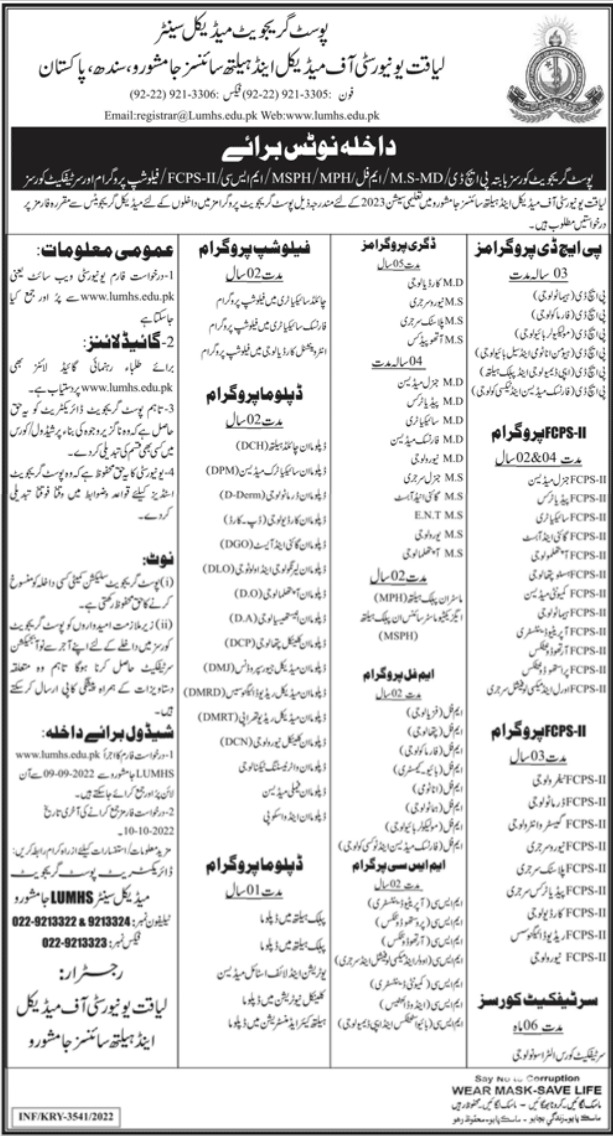 پوسٹ گریجویٹ میڈیکل سینٹر
لیاقت یونیورسٹی آف میڈیکل اینڈ ہیلتھ سائنسز جامشورو، سندھ، پاکستان
فون: 3305-921 (22-92) فیکس: 3306-921 (22-92)
Email:registrar@Lumhs.edu.pk Web:www.lumhs.edu.pk
داخلہ نوٹس برائے
پوسٹ گریجویٹ کورسز بابتہ پی ایچ ڈی/M.S-MD/ایم فل/MPH/MSPH/ایم ایس سی/FCPS-II/فیلوشپ پروگرام اور سرٹیفکیٹ کورسز
لیاقت یونیورسٹی آف میڈیکل اینڈ ہیلتھ سائنسز جامشورو میں تعلیمی سیشن 2023 کے لئے مندرجہ ذیل پوسٹ گریجویٹ پروگرامز میں داخلوں کے لئے میڈیکل گریجویٹس سے مقررہ فارمز پر
درخواستیں مطلوب ہیں۔
پی ایچ ڈی پروگرامز
03 سالہ مدت
پی ایچ ڈی (ہیماٹولوجی)
پی ایچ ڈی (فارماکولوجی)
پی ایچ ڈی (مولیکیولر بائیولوجی)
پی ایچ ڈی (ہیومن اناٹومی اینڈ سیل بائیولوجی)
پی ایچ ڈی (ایپی ڈیمیولوجی اینڈ پبلک ہیلتھ)
پی ایچ ڈی (فارنسک میڈیسن اینڈ ٹیکسی کولوجی)
FCPS-II پروگرام
مدت 04&02 سال
FCPS-II جنرل میڈیسن
FCPS-II پیڈیاٹرکس
FCPS-II سائیکیاٹری
FCPS-II گائنی اینڈ آبسٹ
FCPS-II آفتھلمولوجی
FCPS-II ہسٹوپیتھالوجی
FCPS-II کمیونٹی میڈیسن
FCPS-II ہیماٹولوجی
FCPS-II آپریٹیو ڈینٹسٹری
FCPS-II آرتھوڈونٹکس
FCPS-II پراستھوڈونٹکس
FCPS-II اورل اینڈ میکسی لوفیشل سرجری
FCPS-II پروگرام
مدت 03 سال
FCPS-II نیفرولوجی
FCPS-II ڈرماٹولوجی
FCPS-II گیسٹرو انٹرولوجی
FCPS-II نیوروسرجری
FCPS-II پلاسٹک سرجری
FCPS-II پیڈیاٹرکس سرجری
FCPS-II کارڈیولوجی
FCPS-II ریڈیو ڈائیگنوسس
FCPS-II نیورولوجی
سرٹیفکیٹ کورسز
مدت 06 ماہ
سرٹیفکیٹ کورس الٹراسونولوجی
ڈگری پروگرامز
مدت 05 سال
M.D کارڈیالوجی
M.S نیوروسرجری
M.S پلاسٹک سرجری
M.S آرتھوپیڈکس
04 سالہ مدت
M.D جنرل میڈیسن
M.D پیڈیاٹرکس
M.D سائیکیاٹری
M.D فارنسک میڈیسن
M.D نیورولوجی
M.S جنرل سرجری
M.S گائنی اینڈ آبسٹ
E.N.T M.S
M.S یورولوجی
M.S آفتھلمالوجی
مدت 02 سال
ماسٹر ان پبلک ہیلتھ (MPH)
ایگزیکٹیو ماسٹر سائنس ان پبلک ہیلتھ
(MSPH)
ایم فل پروگرام
مدت 02 سال
ایم فل (فزیالوجی)
ایم فل (پتھالوجی)
ایم فل (فارماکولوجی)
ایم فل (بائیوکیمسٹری)
ایم فل (اناٹومی)
ایم فل (ہماٹولوجی)
ایم فل (مولیکیولر بائیولوجی)
ایم فل (فارنسک میڈیسن اینڈ ٹوکسی کولوجی)
ایم ایس سی پرگرام
مدت 02 سال
ایم ایس سی (آپریٹیو ڈینٹسٹری)
ایم ایس سی (پروستھوڈونٹکس)
ایم ایس سی (آرتھوڈونٹکس)
ایم ایس سی (اورل اینڈ میکسی لوفیشل اینڈ سرجری)
ایم ایس سی (کمیونٹی ڈینٹسٹری)
ایم ایس سی (بائیواسٹیٹکس اینڈ ایپی ڈیمیولوجی)
فیلوشپ پروگرام
مدت 02 سال
چائلڈ سائیکیاٹری میں فیلوشپ پروگرام
فارنسک سائیکیاٹری میں فیلوشپ پروگرام
انٹروینشنل کارڈیالوجی میں فیلوشپ پروگرام
ڈپلوما پروگرام
مدت 02 سال
ڈپلوما ان چائلڈ ہیلتھ (DCH)
ڈپلوما ان سائیکیاٹرک میڈیسن (DPM)
ڈپلوما ان ڈرماٹولوجی (D-Derm)
ڈپلوما ان کارڈیولوجی (ڈپ۔کارڈ)
ڈپلوما ان گائنی اینڈ آبسٹ (DGO)
ڈپلوما ان لیرنگولوجی اینڈ اوٹولوجی (DLO)
ڈپلوما ان آفتھلمالوجی (D.O)
ڈپلوما ان انیستھیسیالوجی (D.A)
ڈپلوما ان کلینیکل پتھالوجی (DCP)
ڈپلوما ان میڈیکل جیورسپروڈنس (DMJ)
ڈپلوما ان میڈیکل ریڈیو ڈائیگنوسس (DMRD)
ڈپلوما ان میڈیکل ریڈیوتھراپی (DMRT)
ڈپلوما ان کلینیکل نیورولوجی (DCN)
ڈپلوما ان فیملی میڈیسن
ڈپلوما ان اینڈواسکوپی
ڈپلوما پروگرام
مدت 01 سال
پبلک ہیلتھ میں ڈپلوما
پبلک ہیلتھ میں ڈپلوما
نیوٹریشن اینڈ لائف اسٹائل میڈیسن
کلینیکل نیوٹریشن میں ڈپلوما
ہیلتھ کیئر ایڈمنسٹریشن میں ڈپلوما
عمومی معلومات:
1- درخواست فارم یونیورسٹی ویب سائٹ یعنی
www.lumhs.edu.pk سے پُر اور جمع کیا
جاسکتا ہے
2- گائیڈ لائنز:
برائے طلباء رہنمائی گائیڈ لائنز بھی
www.lumhs.edu.pk پر دستیاب ہے۔
3- تاہم پوسٹ گریجویٹ ڈائریکٹریٹ کو یہ حق
حاصل ہے کہ وہ ناگزیر وجوہ کی بناء پر شیڈول/کورس
میں کسی بھی قسم کی تبدیلی کردے۔
4- یونیورسٹی کا یہ حق محفوظ ہے کہ وہ پوسٹ گریجویٹ
اسٹڈیز کیلئے قواعد و ضوابط میں وقتاً فوقتاً تبدیلی
کردے۔
نوٹ:
(i) پوسٹ گریجویٹ سلیکشن کمیٹی کسی داخلہ کو منسوخ
کرنے کا حق محفوظ رکھتی ہے۔
(ii) زیر ملازمت امیدواروں کو پوسٹ گریجویٹ
کورسز میں داخلے کے لئے اپنے آجر سے نو آبجیکشن
سرٹیفکیٹ حاصل کرنا ہوگا تاہم وہ متعلقہ
دستاویزات کے ہمراہ پیشگی کاپی ارسال کرسکتے
ہیں۔
شیڈول برائے داخلہ:
1- درخواست فارم کا اجرا www.lumhs.edu.pk
LUMHS جامشورو سے 2022-09-09 سے آن
لائن پُر اور جمع کرائے جاسکتے ہیں۔
2- درخواست فارمز جمع کرانے کی آخری تاریخ
10-10-2022
مزید معلومات/استفسارات کیلئے ازراہ کرام رابطہ کریں:
ڈائریکٹریٹ پوسٹ گریجویٹ
میڈیکل سینٹر LUMHS جامشورو
ٹیلیفون نمبر: 9213324 & 022-9213322
فیکس نمبر: 022-9213323
رجسٹرار:
لیاقت یونیورسٹی آف میڈیکل
اینڈ ہیلتھ سائنسز جامشورو
INF/KRY-3541/2022
Say No to Corruption
WEAR MASK-SAVE LIFE
ماسک لگائیں۔ کرونا بھگائیں - ماسک لگائیں۔ محفوظ رہیں
ماسڪ پايو۔زندگي بچايو - ماسڪ پايو۔محفوظ رهو